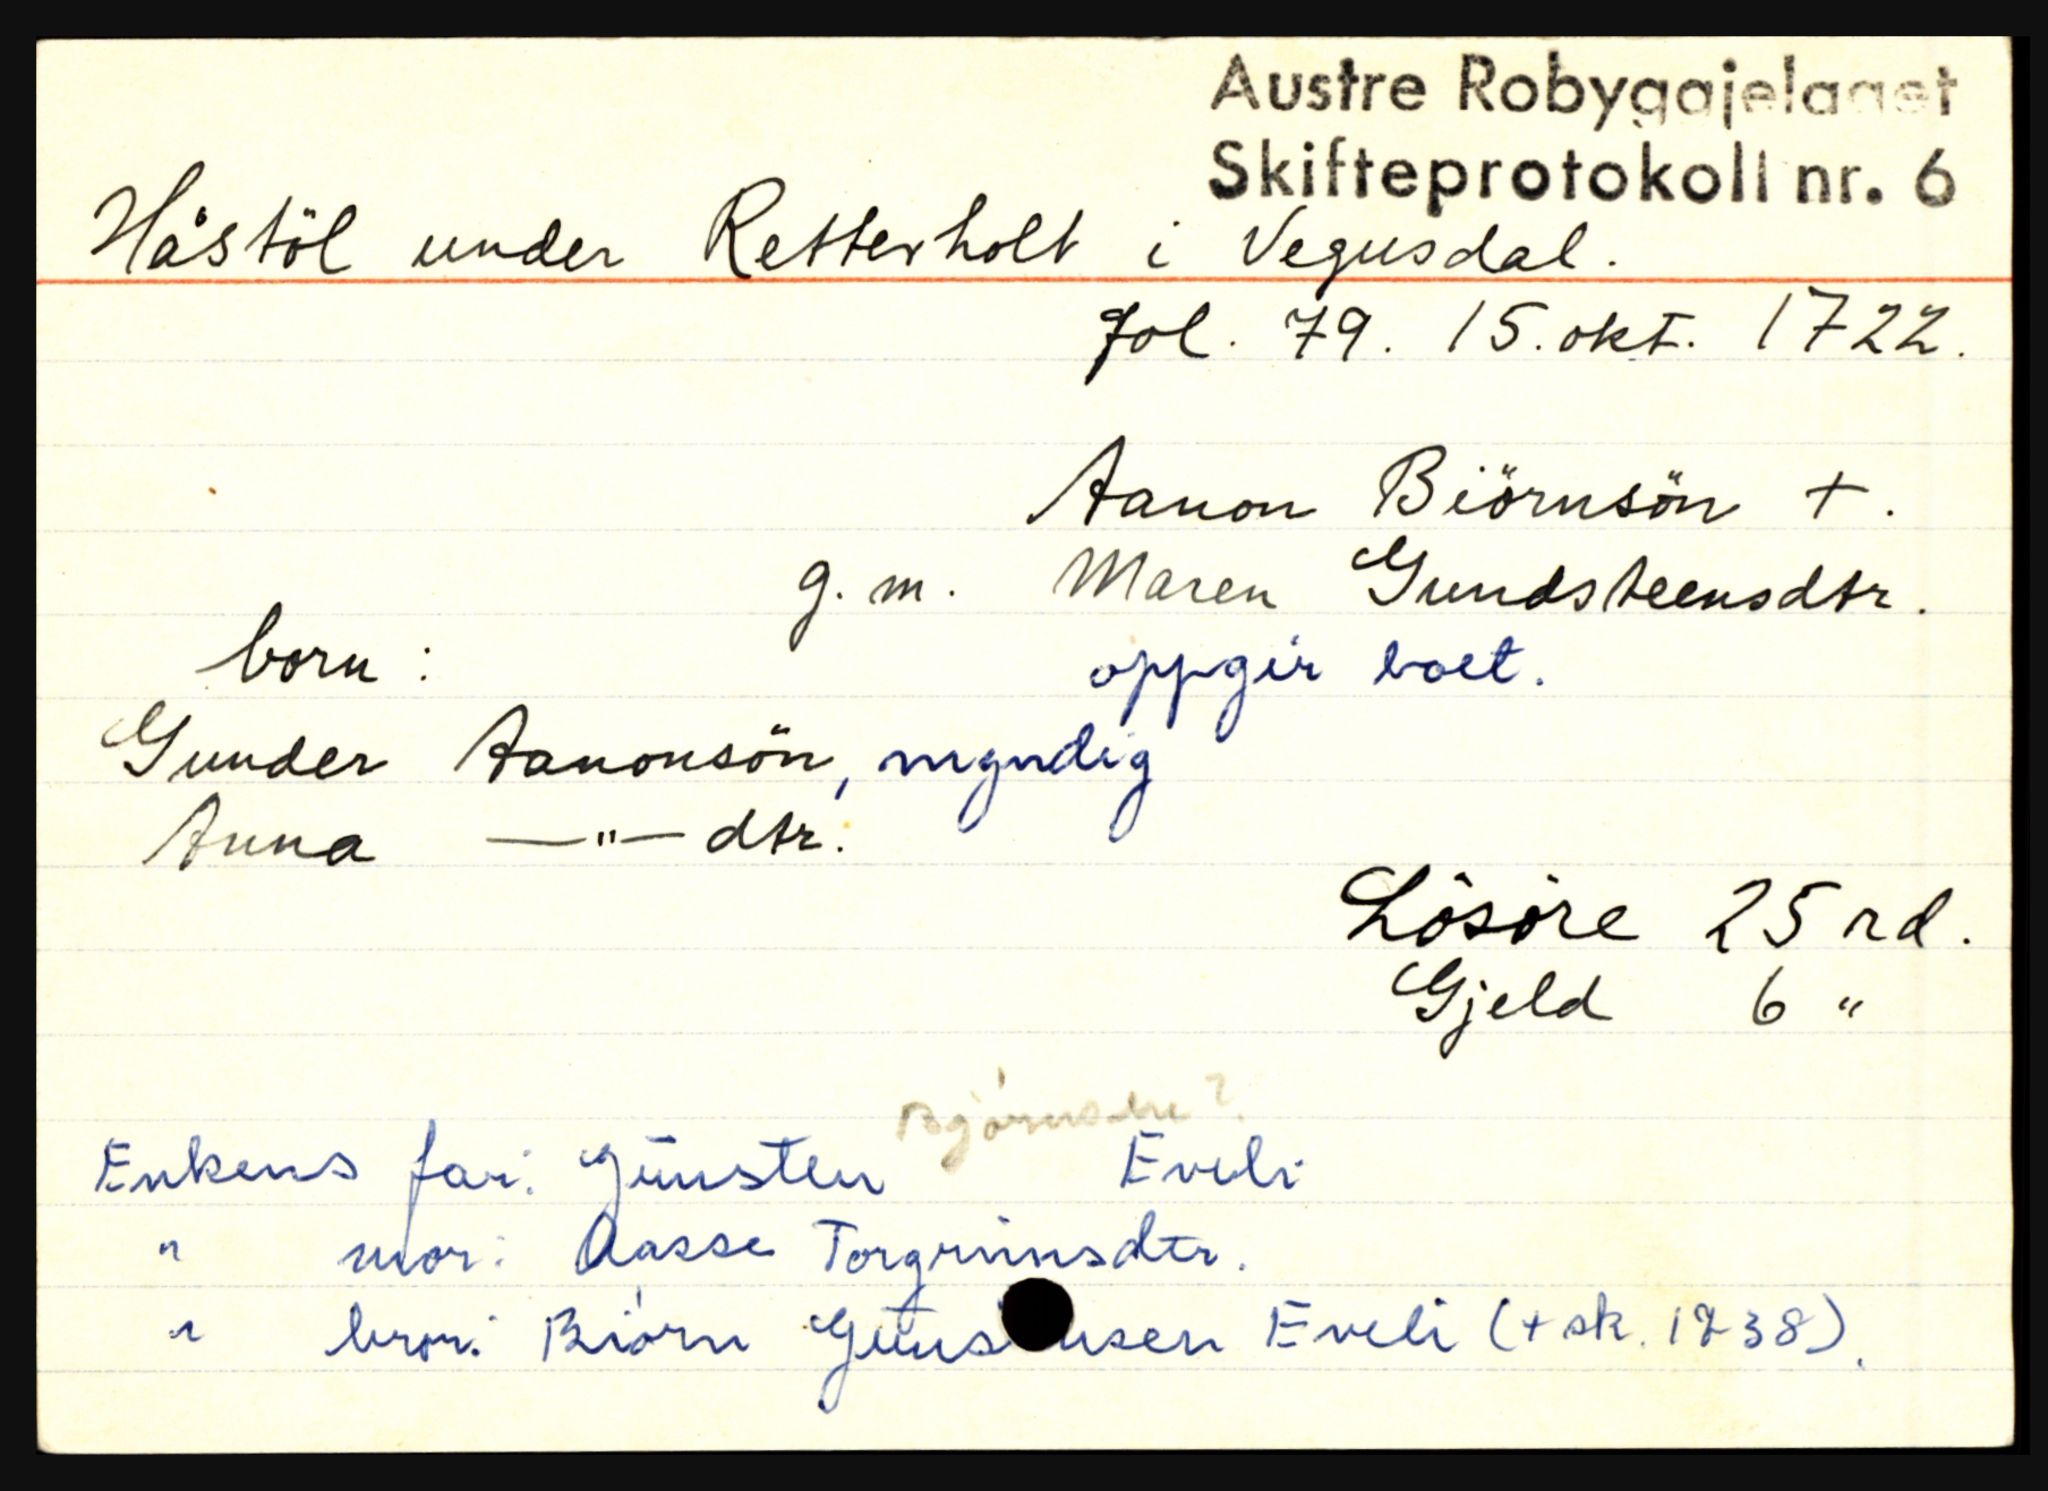 Austre Robygdjelaget
Skifteprotokoll nr. 6
Håstöl under Retterholt i Vegusdal.
fol. 79. 15. okt. 1722.
Aanon Biörnsön +.
g. m. Maren Gundsteensdtr.
born: oppgir boet.
Gunder Aanonsön, myndig
Anna —"— dtr.
Lösöre 25 rd.
Gjeld 6 "
Enkens far: Gunsten Eveli
" mor: Aasse Torgrimsdtr.
" bror: Biørn Eveli (+ sk. 1738).